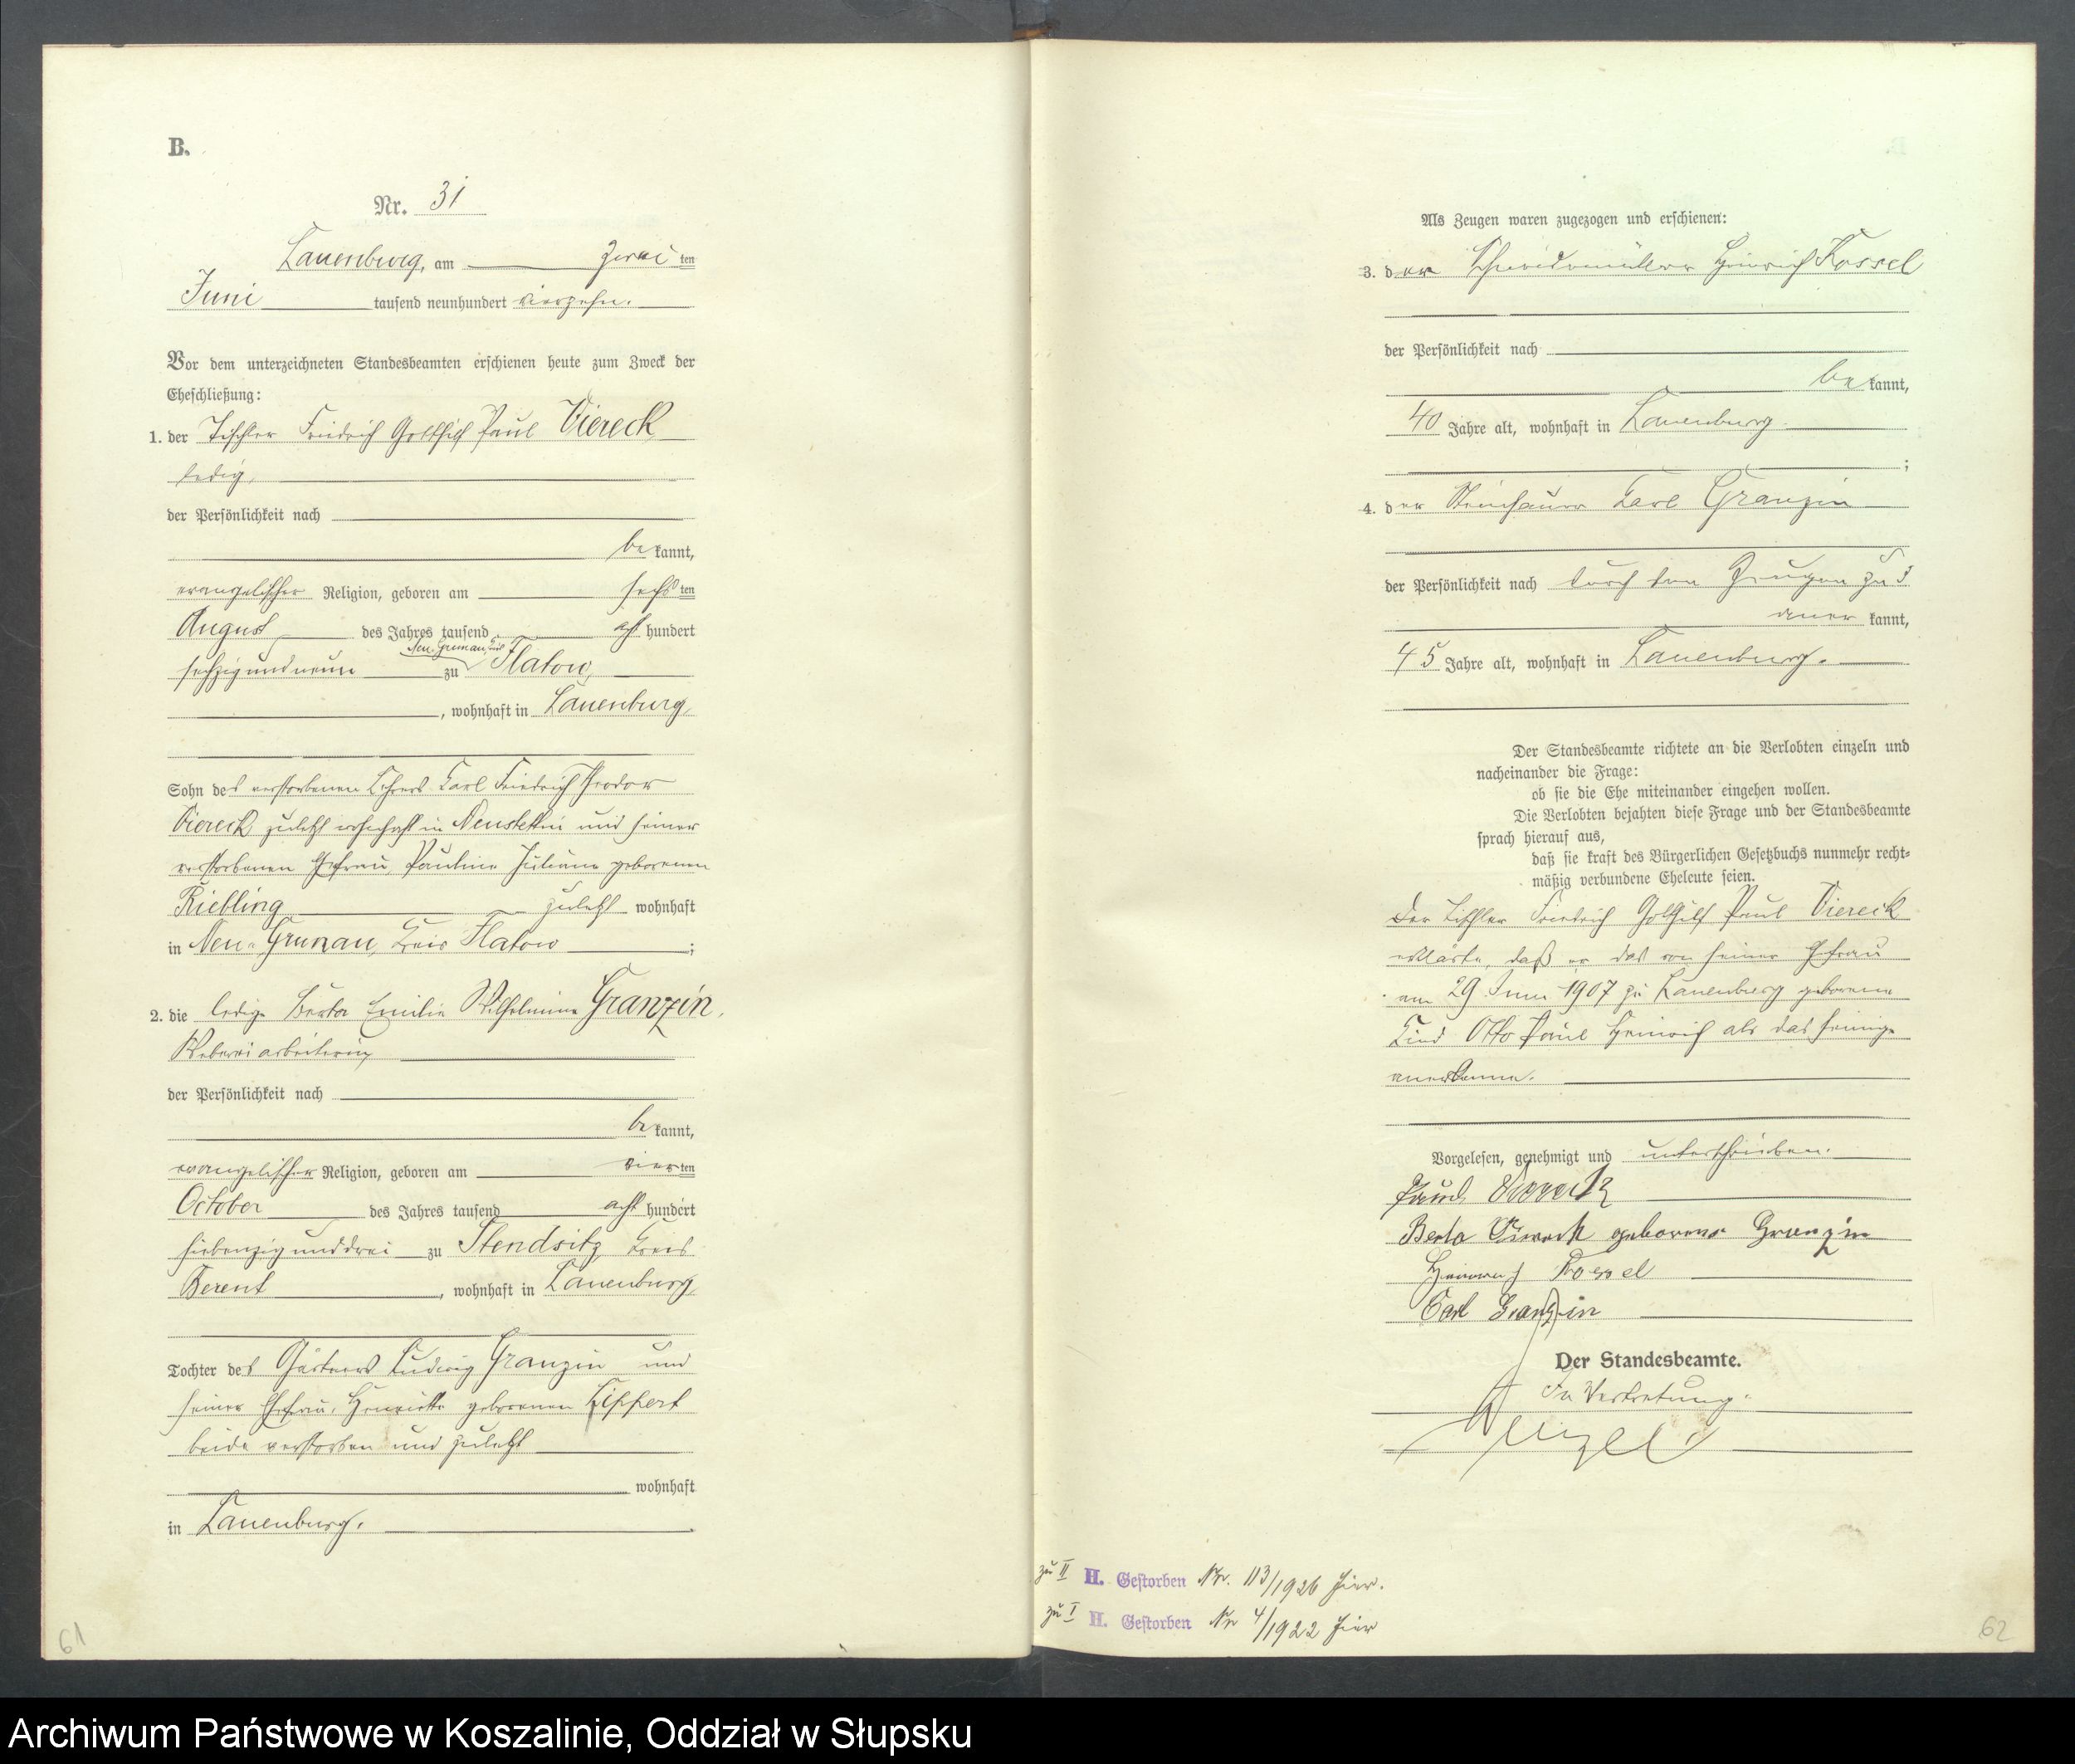 B.
Nr. 31
Lauenburg, am zwei ten
Juni tausend neunhundert vierzehn.
Vor dem unterzeichneten Standesbeamten erschienen heute zum Zweck der
Eheschließung:
1. der Tischler Friedrich Gotthilf Paul Viereck
ledig,
der Persönlichkeit nach
be kannt,
evangelischer Religion, geboren am sechs ten
August des Jahres tausend acht hundert
Neu Grunau, Kreis
sechzig und neun zu Flatow,
, wohnhaft in Lauenburg,
Sohn des verstorbenen Lehrers Carl Friedrich Theodor
Viereck zuletzt wohnhaft in Neustettin und seiner
verstorbenen Ehefrau, Pauline Juliane geborenen
Riebling zuletzt wohnhaft
in Neu-Grunau, Kreis Flatow ;
2. die ledige Berta Emilie Wilhelmine Granzin,
Webereiarbeiterin
der Persönlichkeit nach
be kannt,
evangelischer Religion, geboren am vier ten
October des Jahres tausend acht hundert
siebenzig und drei zu Stendsitz Kreis
Berent , wohnhaft in Lauenburg,
Tochter des Gärtners Ludwig Granzin und
seiner Ehefrau, Henriette geborenen Lippert
beide verstorben und zuletzt
wohnhaft
in Lauenburg.
Als Zeugen waren zugezogen und erschienen:
3. der Schneidemüller Heinrich Kossel
der Persönlichkeit nach
be kannt,
40 Jahre alt, wohnhaft in Lauenburg
;
4. der Steinhauer Carl Granzin
der Persönlichkeit nach durch den Zeugen zu 3
aner kannt,
45 Jahre alt, wohnhaft in Lauenburg.
Der Standesbeamte richtete an die Verlobten einzeln und
nacheinander die Frage:
ob sie die Ehe miteinander eingehen wollen.
Die Verlobten bejahten diese Frage und der Standesbeamte
sprach hierauf aus,
daß sie kraft des Bürgerlichen Gesetzbuchs nunmehr recht-
mäßig verbundene Eheleute seien.
Der Tischler Friedrich Gotthilf Paul Viereck
erklärte, daß er das von seiner Ehefrau
am 29 Juni 1907 zu Lauenburg geborene
Kind Otto Paul Heinrich als das seinige
anerkenne.
Vorgelesen, genehmigt und unterschrieben.
Paul Viereck
Berta Viereck geborene Granzin
Heinrich Kossel
Carl Granzin
Der Standesbeamte.
In Vertretung.
zu II H. Gestorben Nr. 113/1926 hier.
zu I H. Gestorben Nr 4/1922 hier
61
62
Archiwum Państwowe w Koszalinie, Oddział w Słupsku